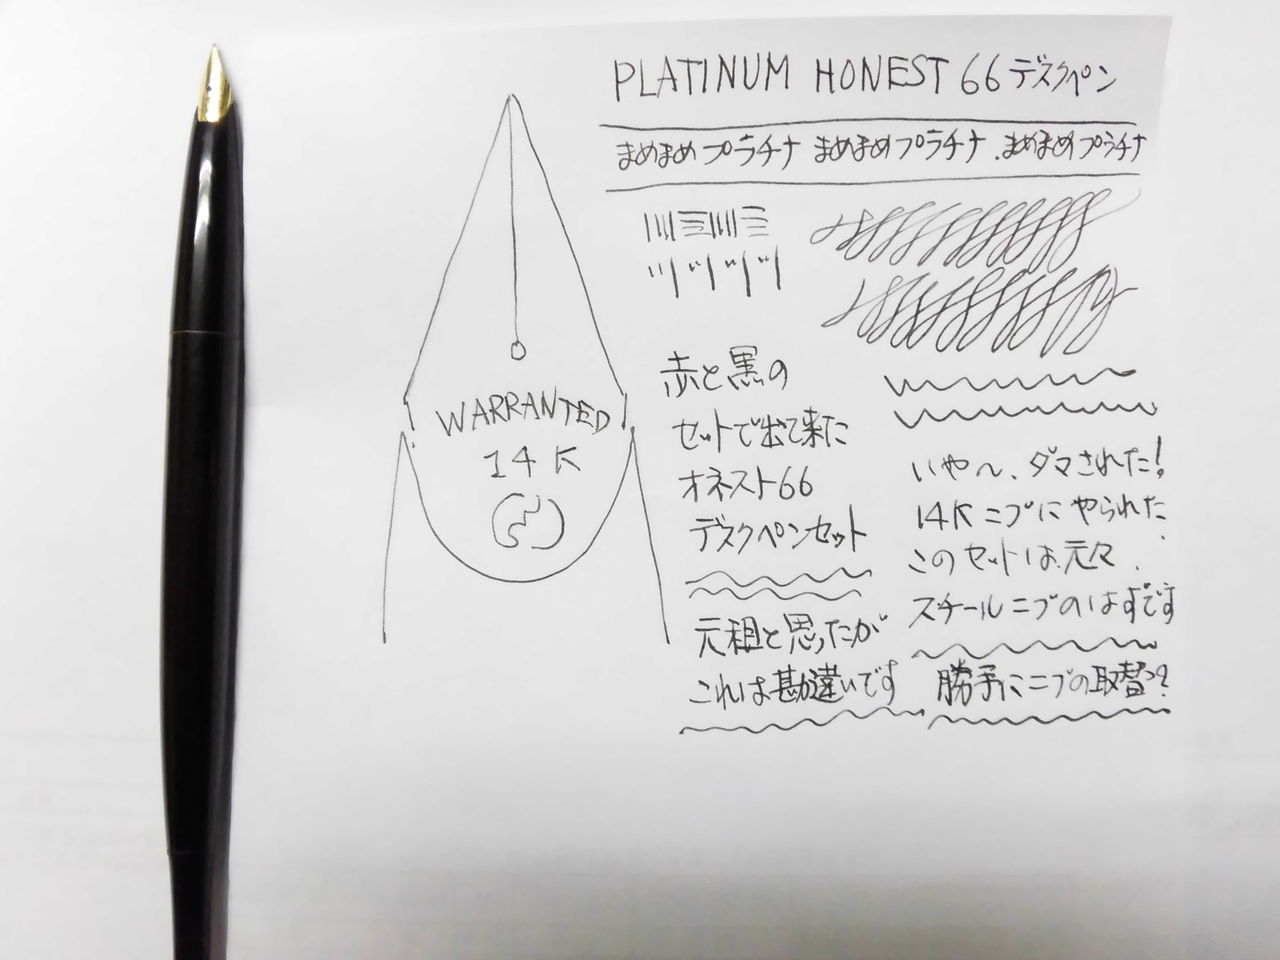 PLATINUM HONEST 66 デスクペン
まめまめプラチナ まめまめプラチナ.まめまめプラチナ
WARRANTED
14K
赤と黒の
セットで出て来た
オネスト66
デスクペンセット
元祖と思ったが
これは勘違いです
いや〜、ダマされた!
14Kニブにやられた.
このセットは元々.
スチールニブのはずです
勝手にニブの取替っ?